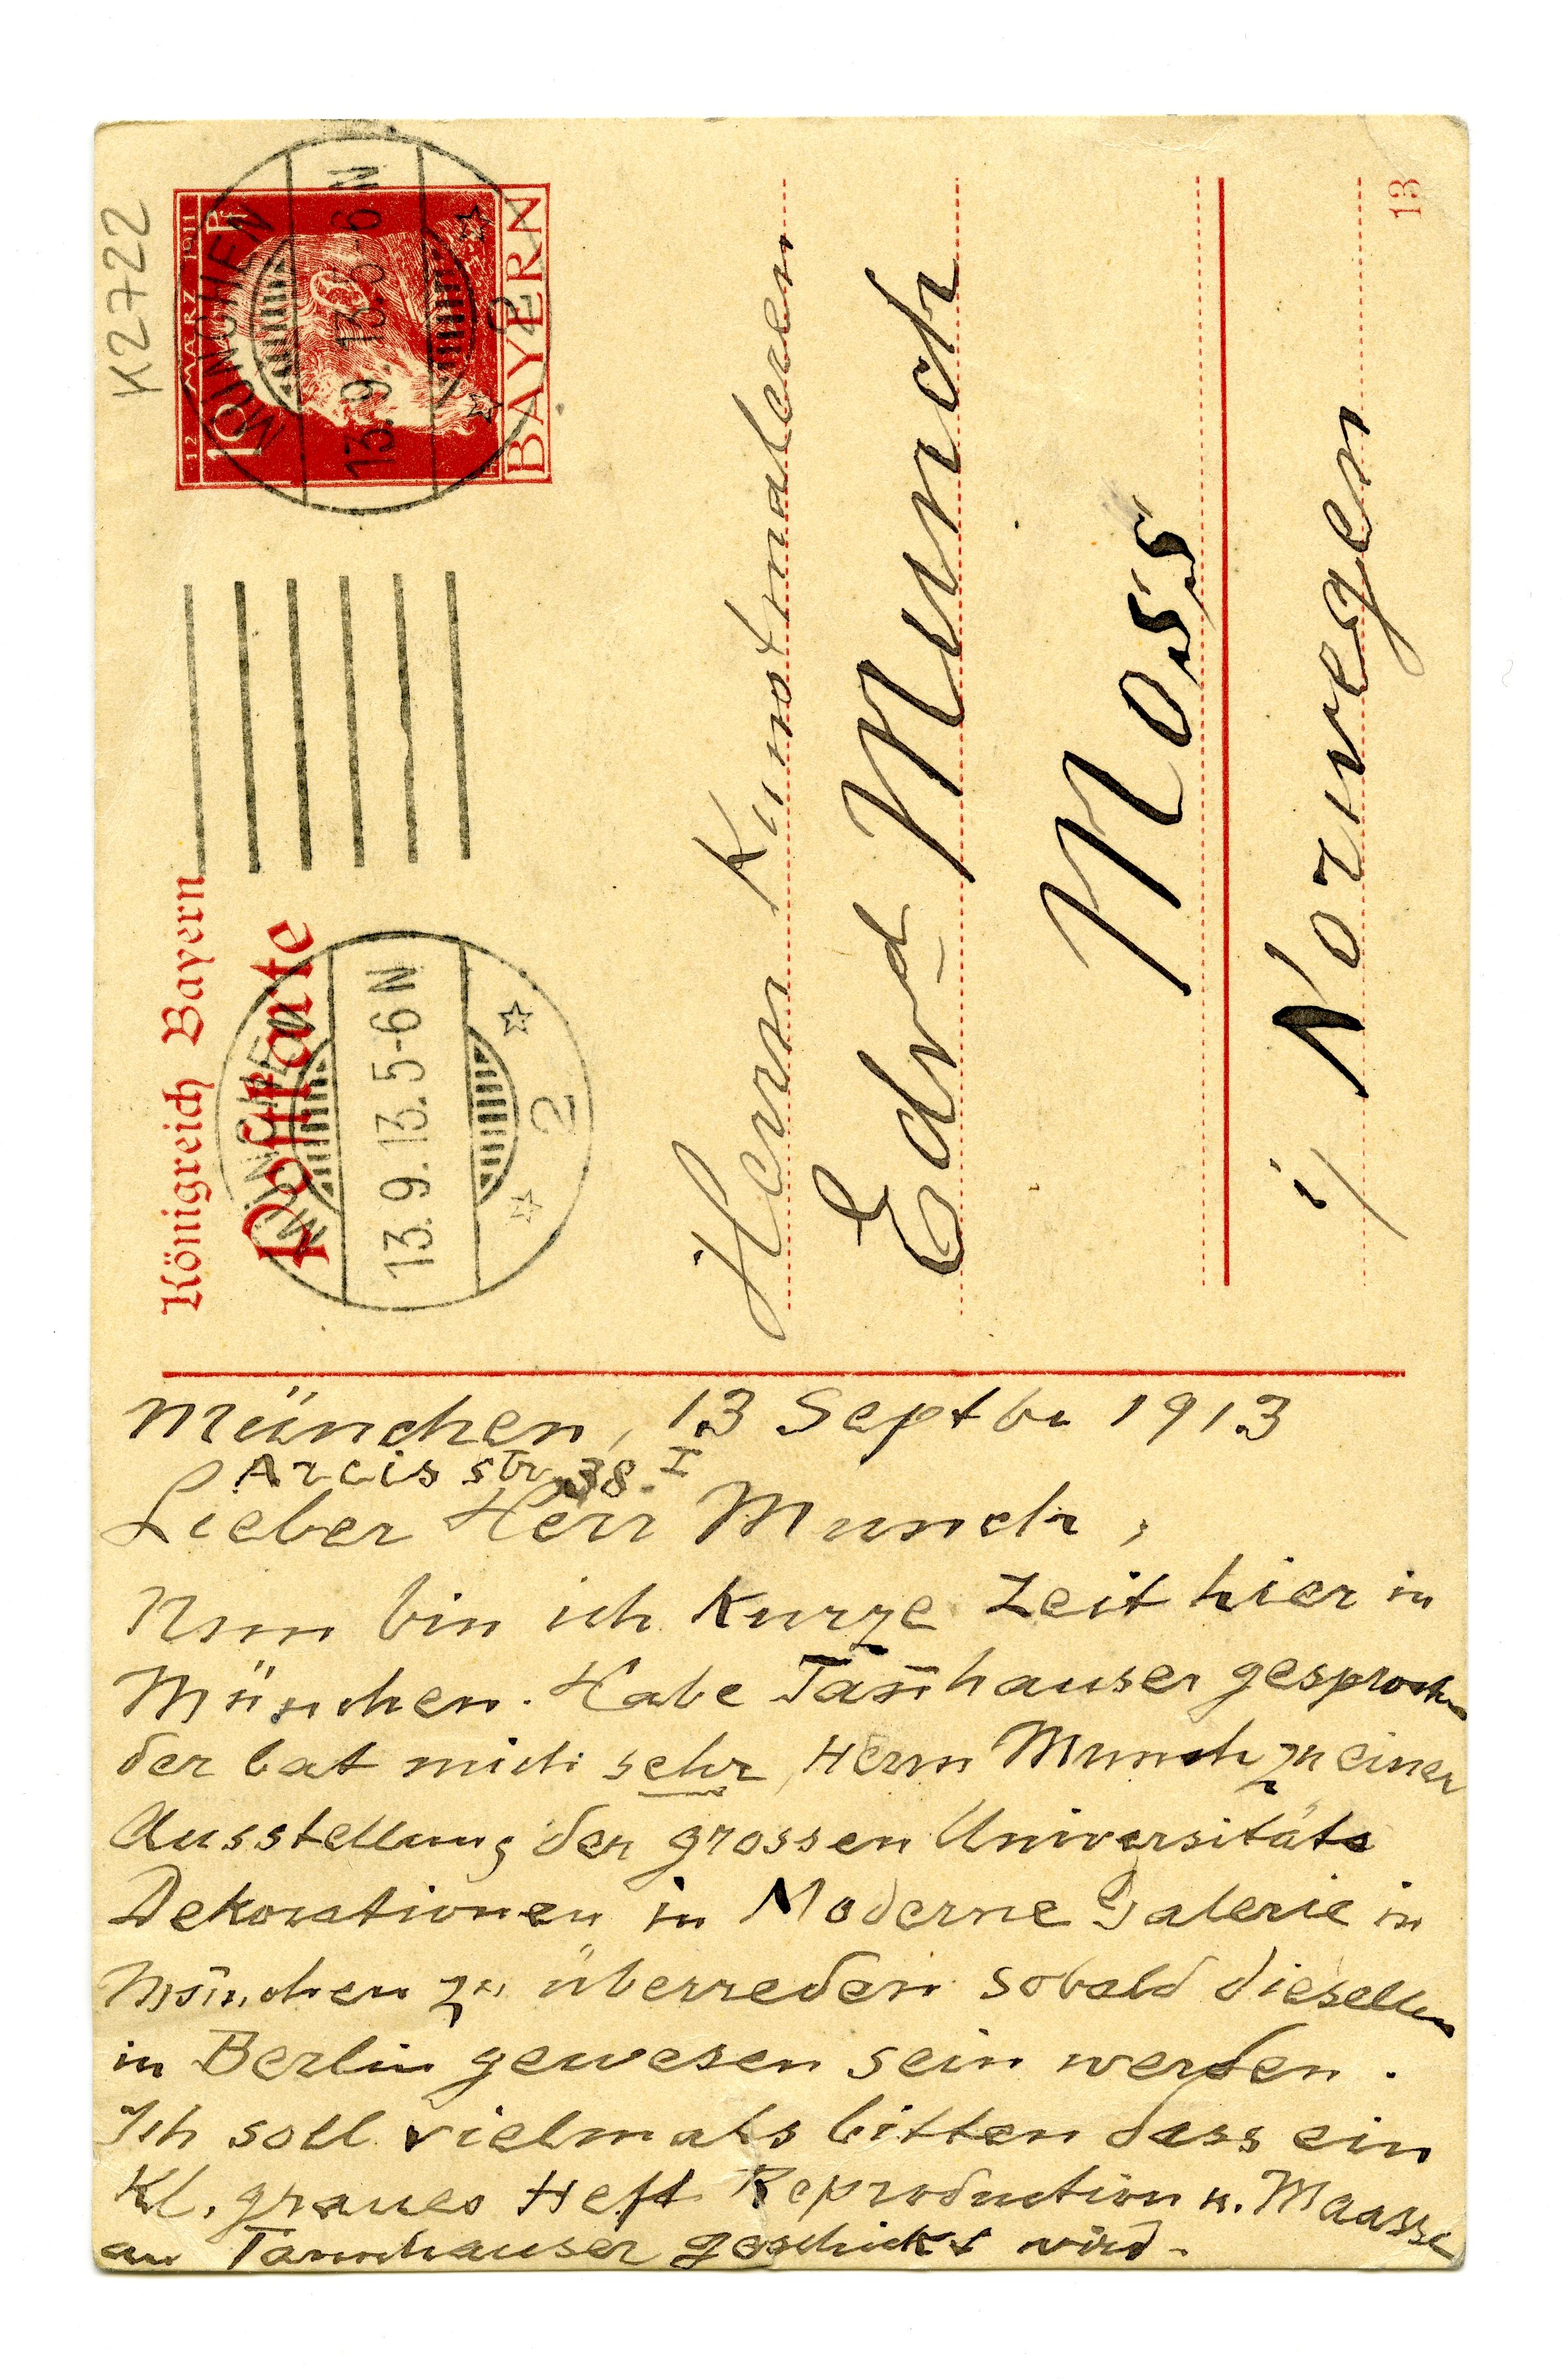 K2722
12 MÄRZ 1911
10 Pf
BAYERN
MÜNCHEN
13.9.13.5-6N
2
Königreich Bayern
Postkarte
MÜNCHEN
13.9.13.5-6N
2
Herrn Kunstmaleren
Edvd Munch
Moss
i/ Norwegen
13
München, 13 Septbr 1913
Arcisstr. 38. I
Lieber Herr Munch,
Nun bin ich kurze Zeit hier in
München. Habe Tan̄hauser gesprochen
der bat mich sehr, Herrn Munch zu einer
Ausstellung der grossen Universitäts
Dekorationen in Moderne Galerie in
München zu überreden sobald dieselben
in Berlin gewesen sein werden.
Ich soll vielmals bitten dass ein
Kl. graues Heft Reproduction u. Maasse
an Tannhauser geschickt wird.